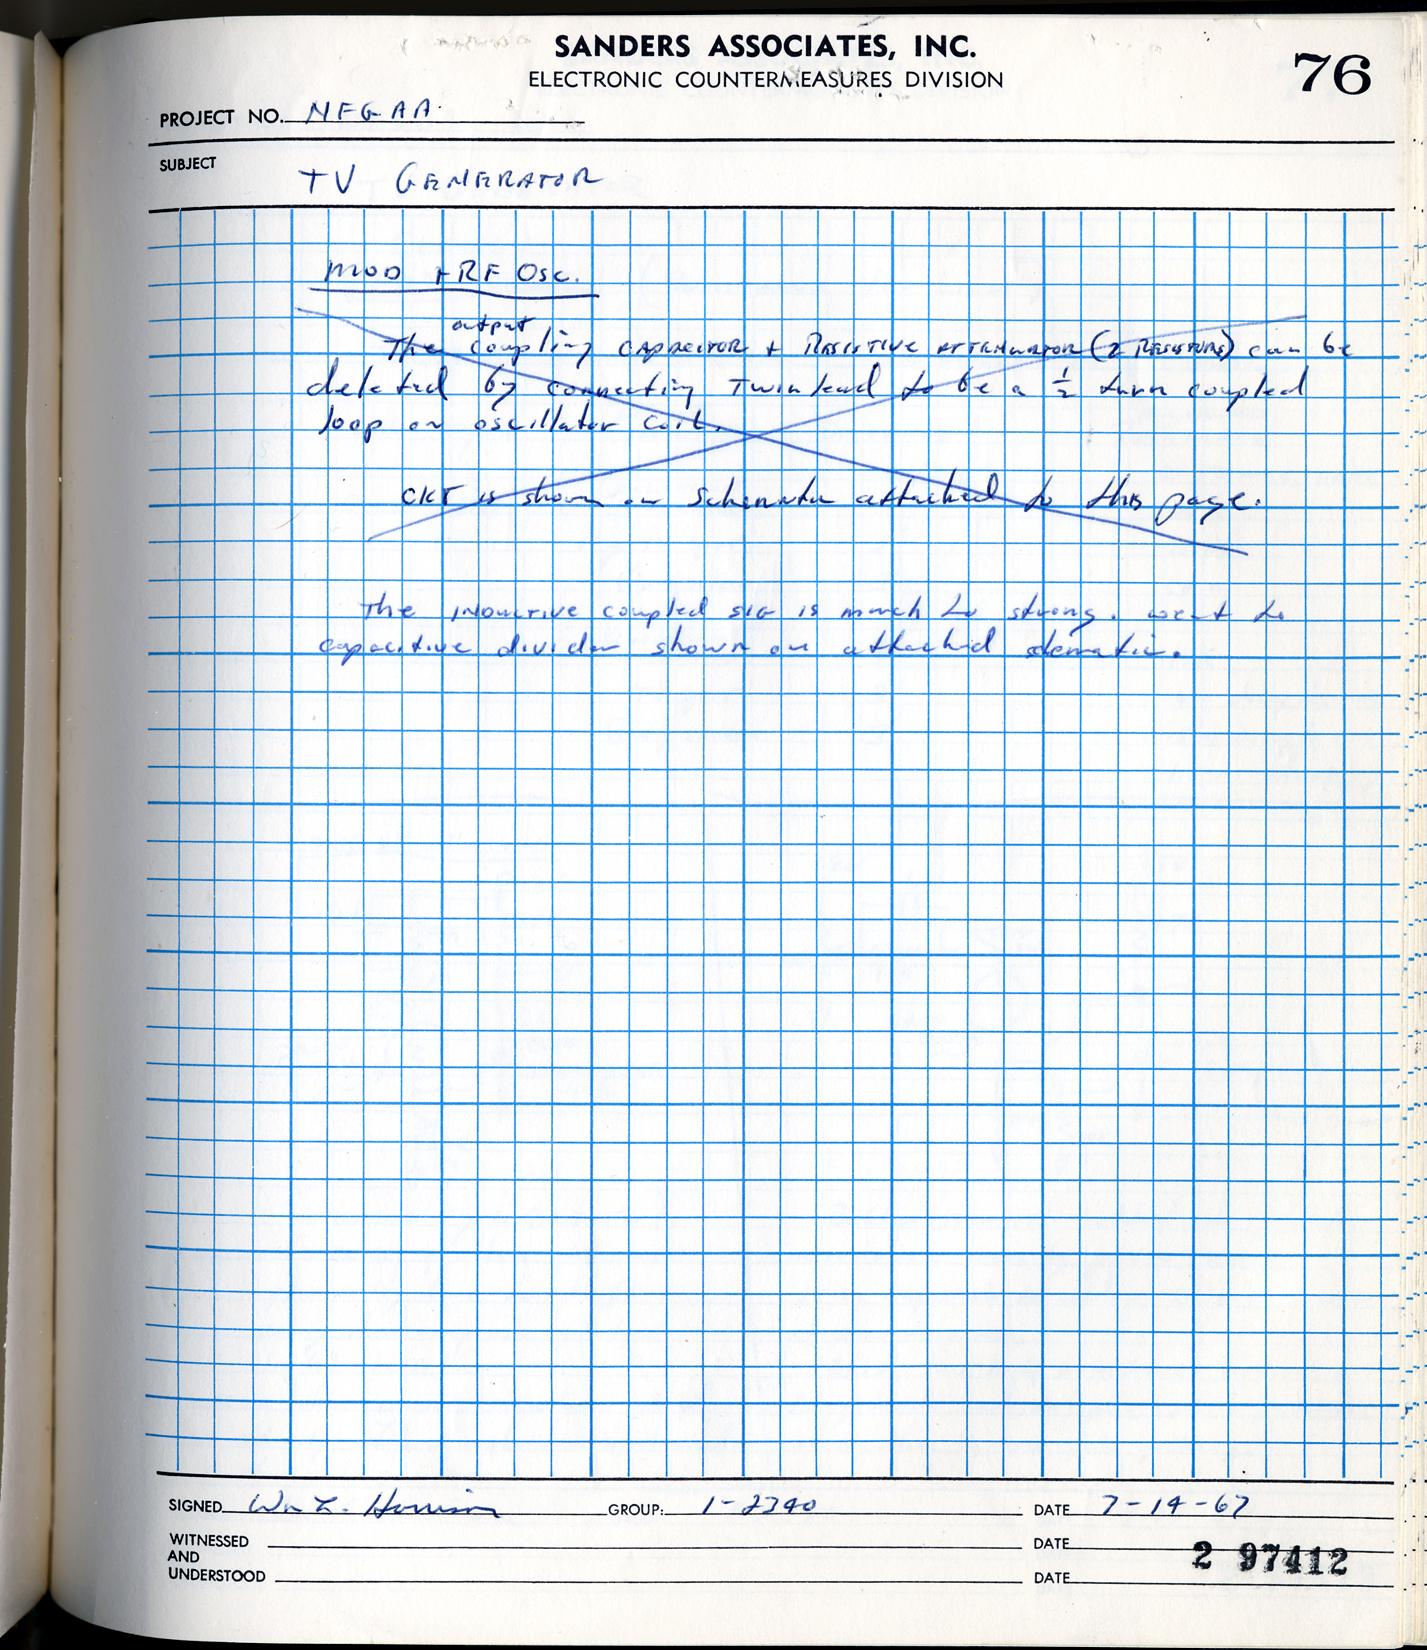 SANDERS ASSOCIATES, INC.
ELECTRONIC COUNTERMEASURES DIVISION
76
PROJECT NO. NFGAA
SUBJECT
TV GENERATOR
MOD + RF OSC.
output
The coupling CAPACITOR + RESISTIVE ATTENUATOR (2 RESISTORS) can be
deleted by connecting Twin lead to be a 1/2 turn coupled
loop on oscillator coil.
CKT is shown on Schematic attached to this page.
The INDUCTIVE coupled SIG IS much to strong. went to
capacitive divider shown on attached schematic.
SIGNED Wm L. Harrison GROUP: 1-2340 DATE 7-14-67
WITNESSED DATE
AND
UNDERSTOOD DATE
2 97412